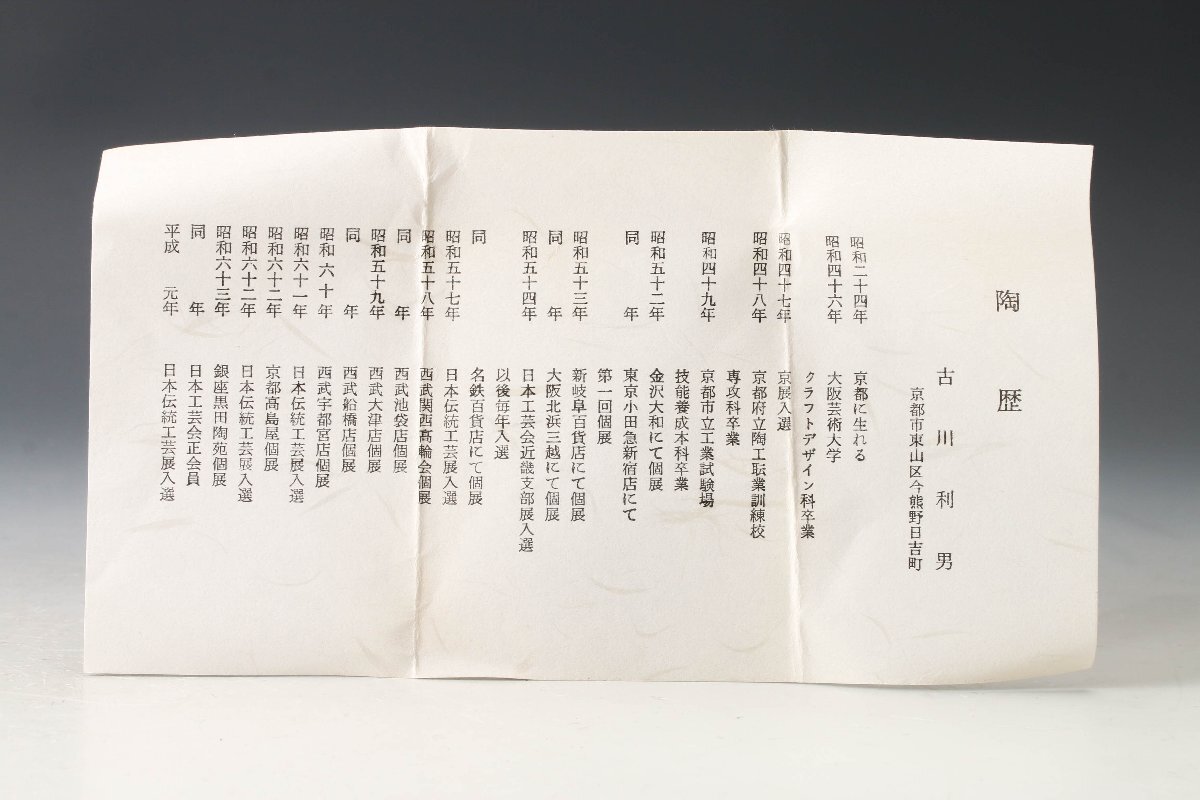 陶歴
古川利男
京都市東山区今熊野日吉町
昭和二十四年 京都に生れる
昭和四十六年 大阪芸術大学
クラフトデザイン科卒業
昭和四十七年 京展入選
昭和四十八年 京都府立陶工転業訓練校
専攻科卒業
昭和四十九年 京都市立工業試験場
技能養成本科卒業
昭和五十二年 金沢大和にて個展
同年 東京小田急新宿店にて
第一回個展
昭和五十三年 新岐阜百貨店にて個展
同年 大阪北浜三越にて個展
昭和五十四年 日本工芸会近畿支部展入選
以後毎年入選
同 名鉄百貨店にて個展
昭和五十七年 日本伝統工芸展入選
昭和五十八年 西武関西高輪会個展
同年 西武池袋店個展
昭和五十九年 西武大津店個展
同年 西武船橋店個展
昭和六十年 西武宇都宮店個展
昭和六十一年 日本伝統工芸展入選
昭和六十二年 京都高島屋個展
昭和六十二年 日本伝統工芸展入選
昭和六十三年 銀座黒田陶苑個展
同年 日本工芸会正会員
平成元年 日本伝統工芸展入選